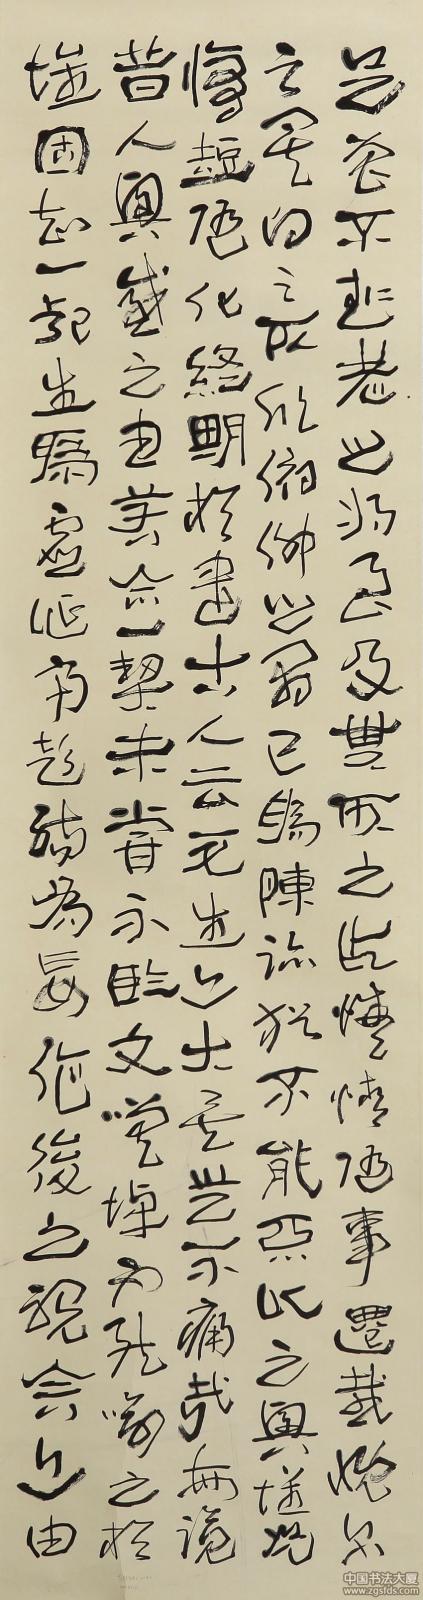 足曾不知老之將至及其所之既惓情隨事遷感慨系
之矣向之所欣俛仰之間已為陳迹猶不能不以之興懷況
脩短隨化終期於盡古人云死生亦大矣豈不痛哉每覽
昔人興感之由若合一契未嘗不臨文嗟悼不能喻之於
懷固知一死生為虛誕齊彭殤為妄作後之視今亦由
中国书法大厦
www.zgsfds.com